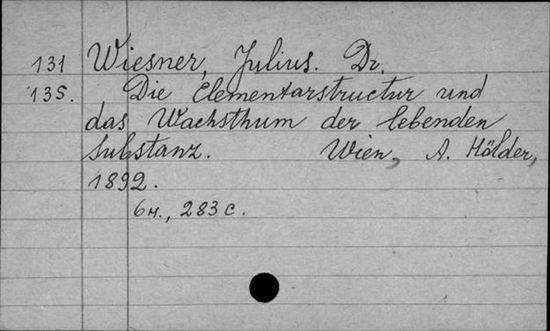 131 Wiesner, Julius. Dr.
135. Die Elementarstructur und
das Wachsthum der lebenden
Substanz. Wien, A. Hölder,
1892.
6н., 283 с.